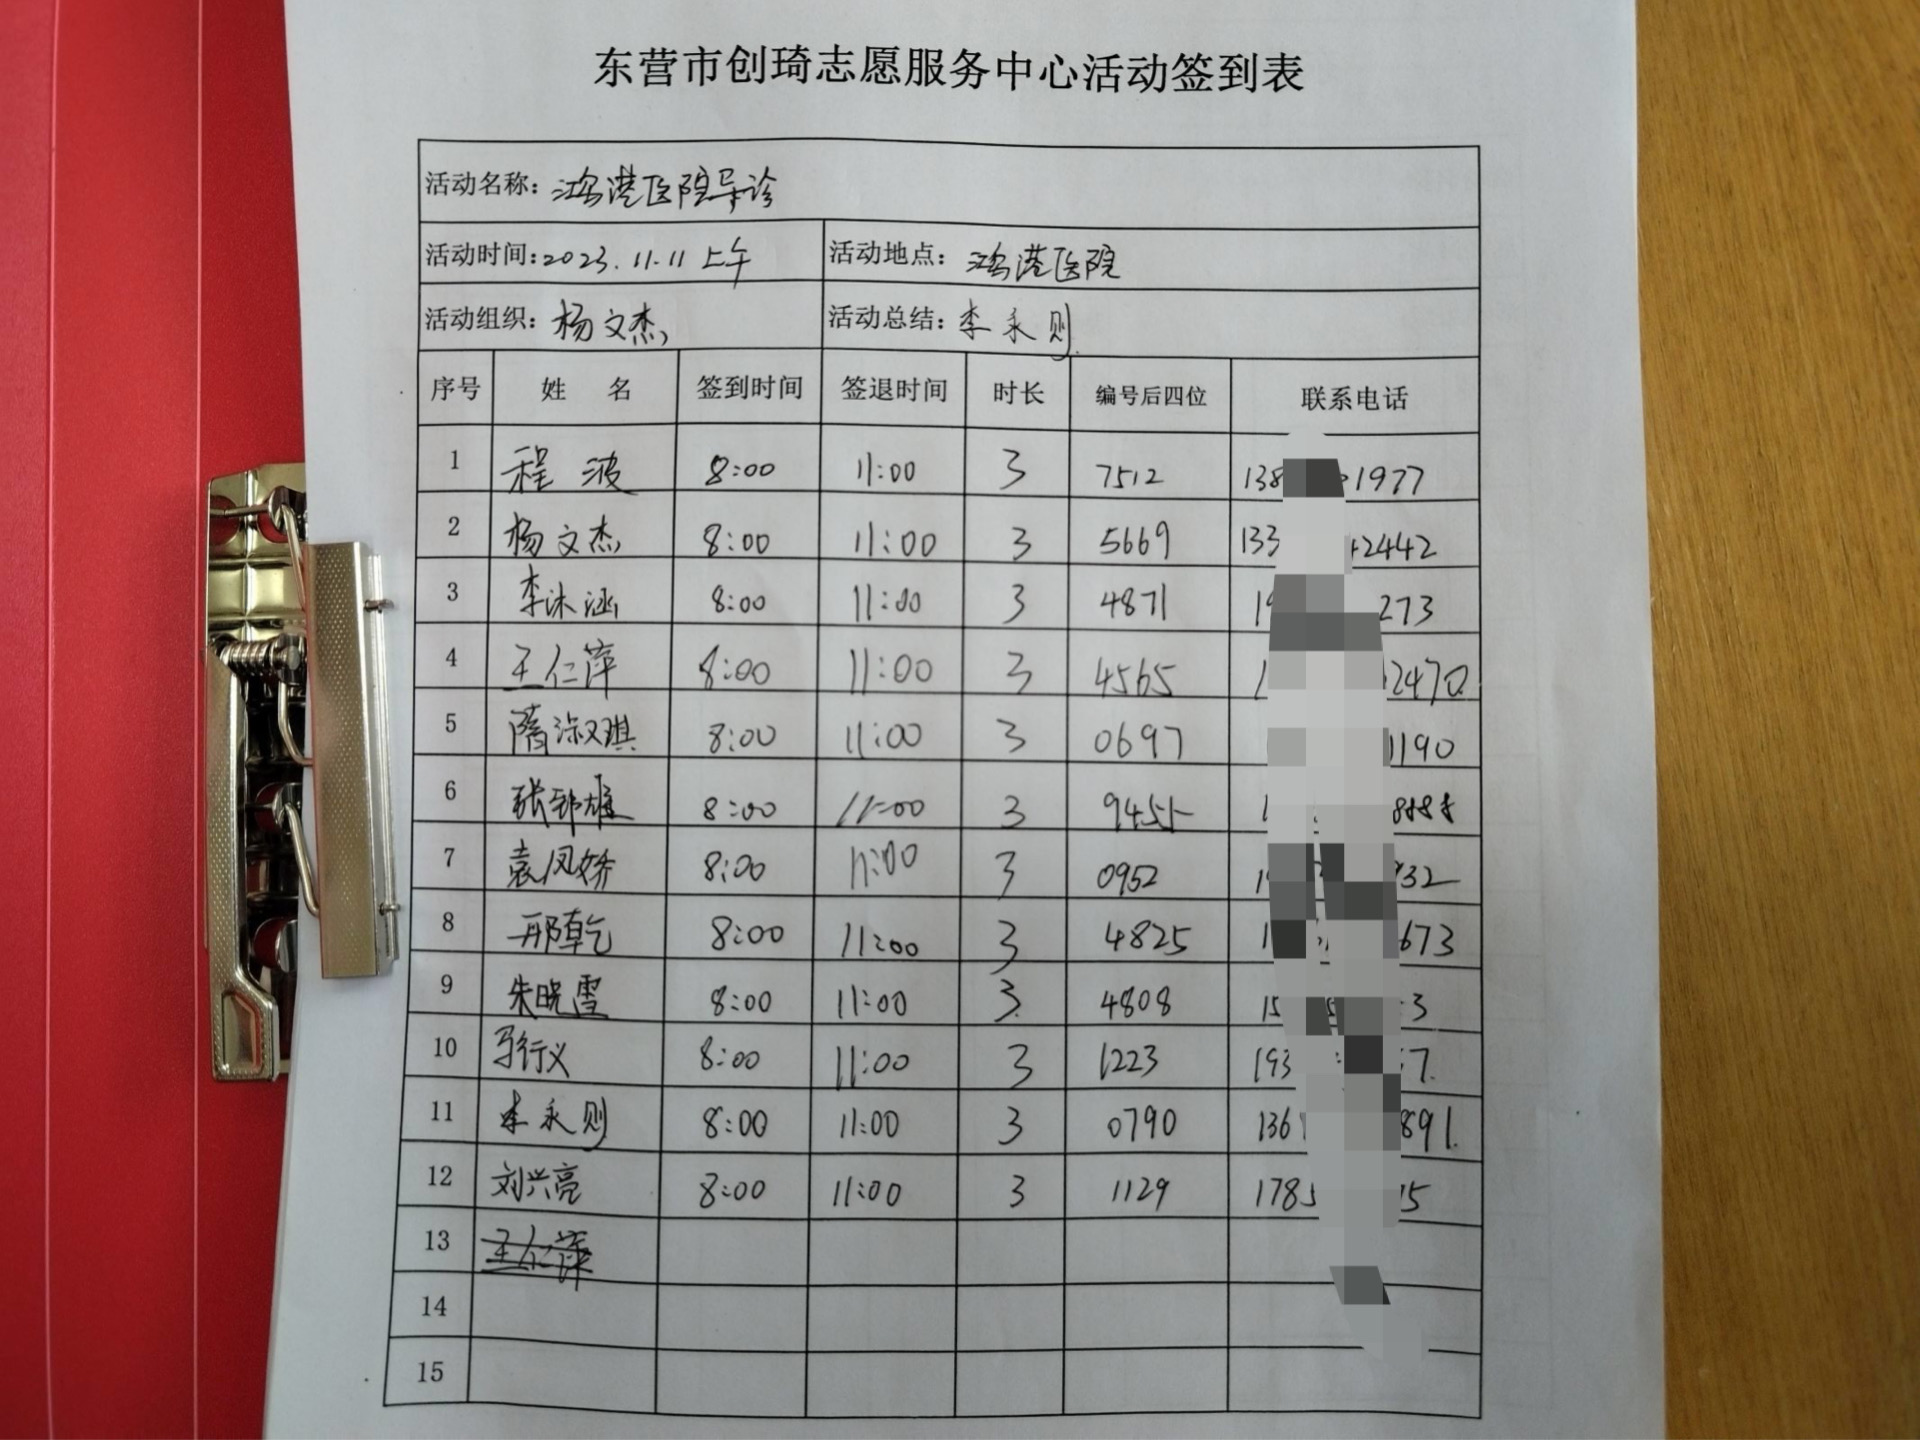 东营市创琦志愿服务中心活动签到表
活动名称：鸿港医院导诊
活动时间：2023.11.11 上午 活动地点：鸿港医院
活动组织：杨文杰 活动总结：李永则
序号 姓 名 签到时间 签退时间 时长 编号后四位 联系电话
1 程波 8:00 11:00 3 7512 138 1977
2 杨文杰 8:00 11:00 3 5669 133 2442
3 李沐涵 8:00 11:00 3 4871 273
4 王仁萍 8:00 11:00 3 4565 2470
5 隋淑琪 8:00 11:00 3 0697 1190
6 张邦雄 8:00 11:00 3 9455 8888
7 袁凤娇 8:00 11:00 3 0952 932
8 邢乾 8:00 11:00 3 4825 673
9 朱晓雪 8:00 11:00 3 4808 15 3
10 马行义 8:00 11:00 3 1223 193 7
11 李永则 8:00 11:00 3 0790 136 891
12 刘兴亮 8:00 11:00 3 1129 178 15
13 王仁萍
14
15